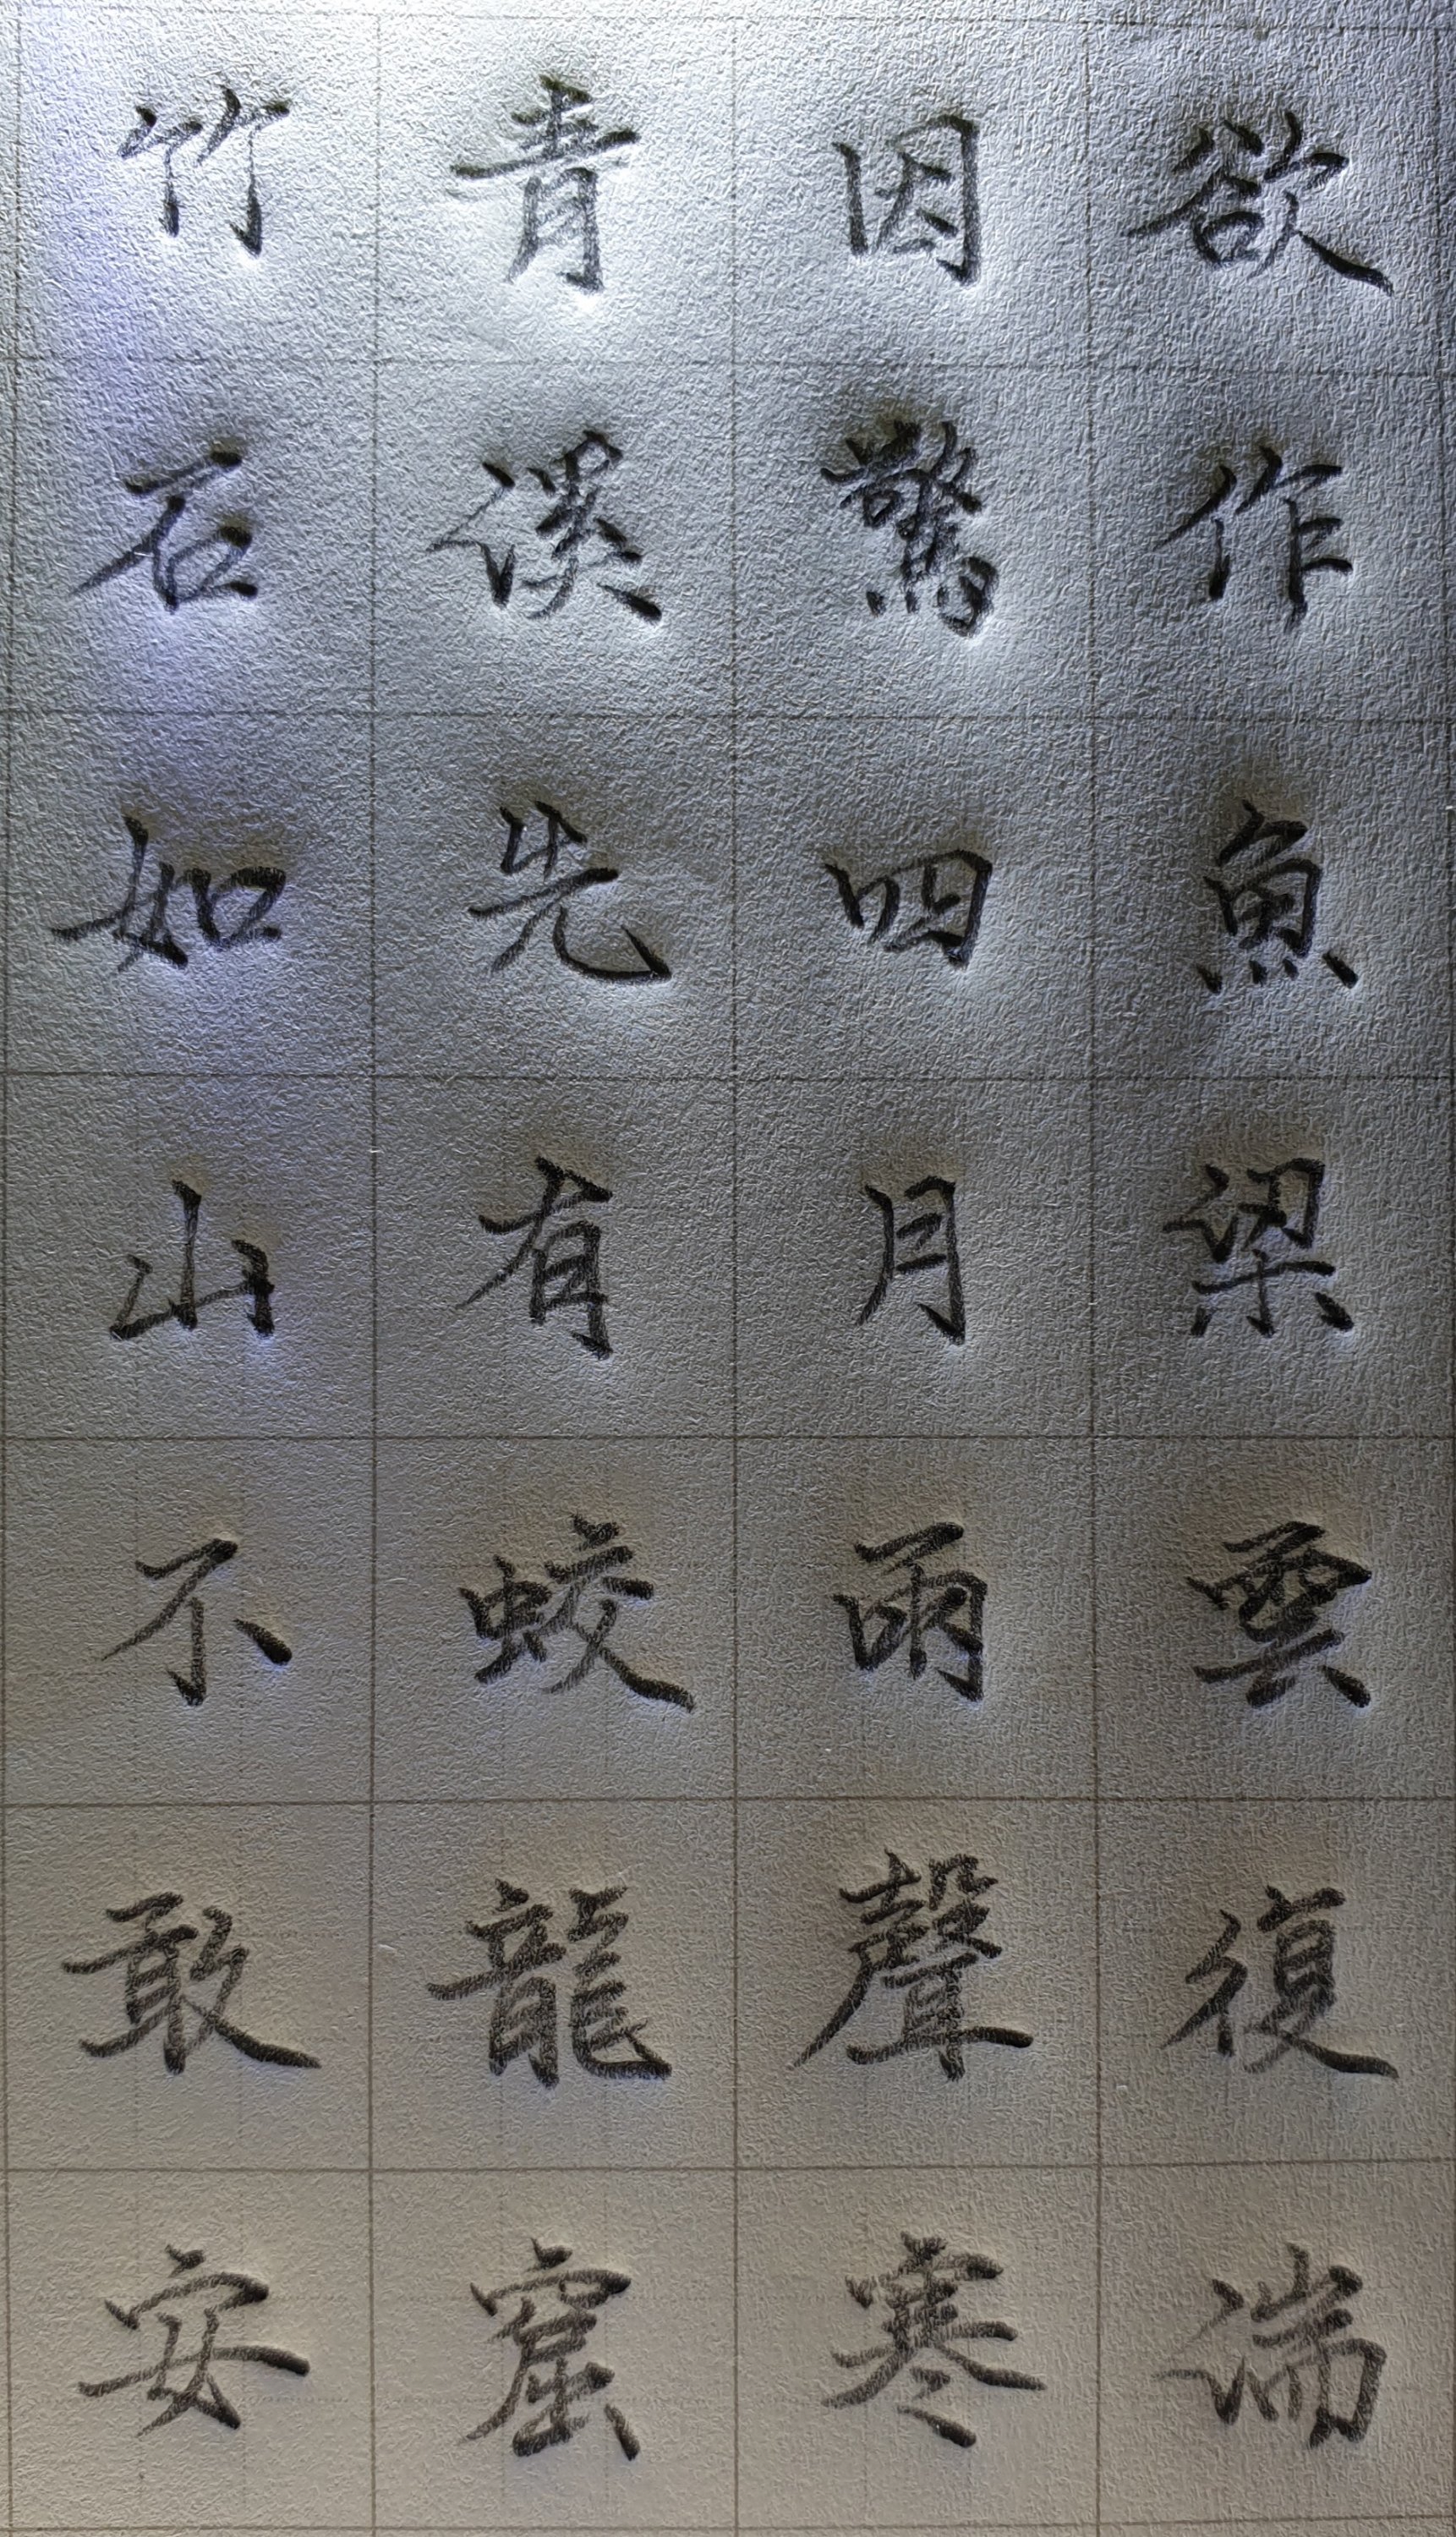 欲作魚梁雲復湍
因驚四月雨聲寒
青溪先有蛟龍窟
竹石如山不敢安